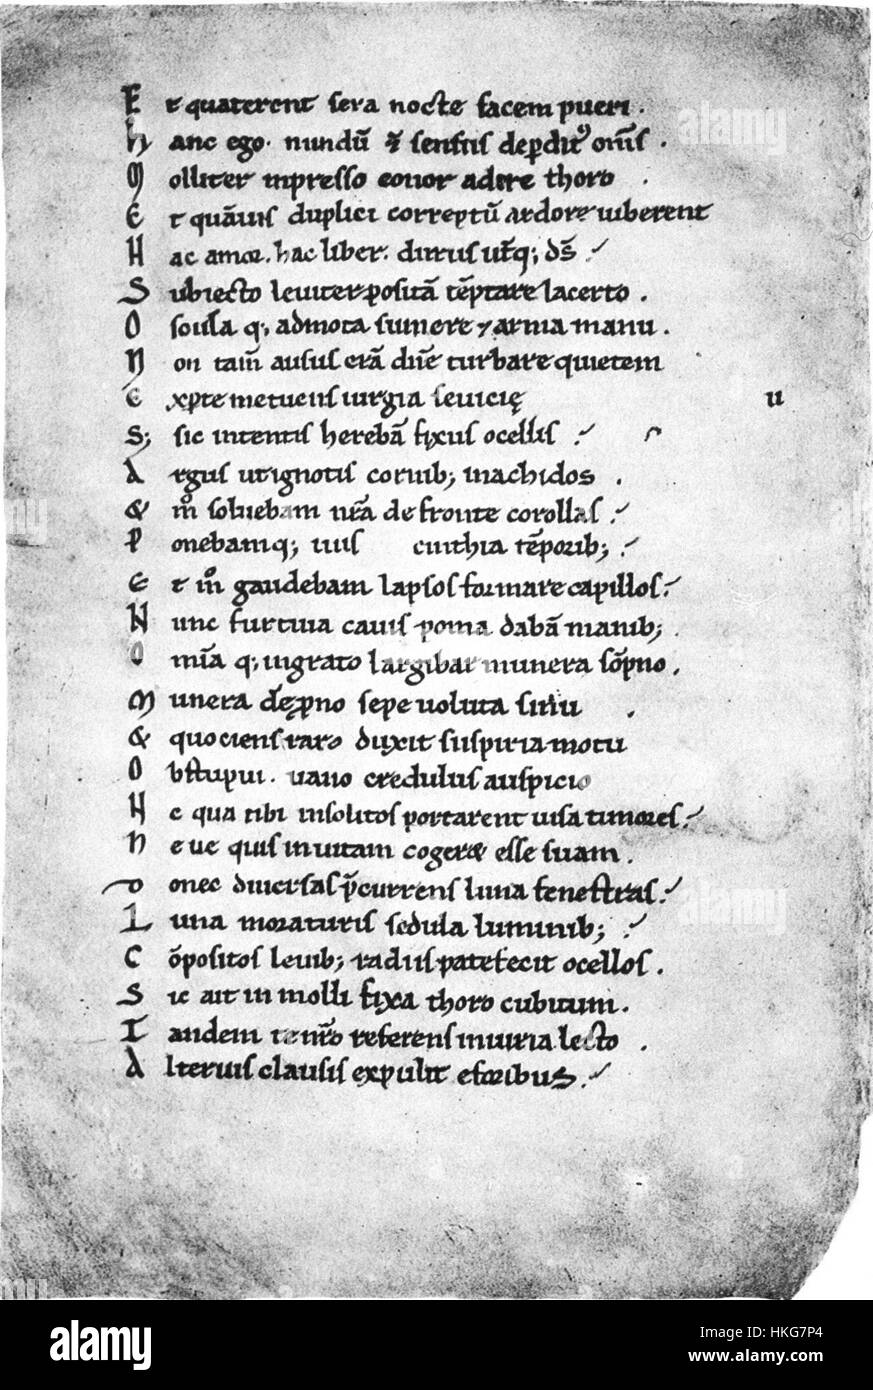 E t quaterent sera nocte facem pueri .
h anc ego . nundū ⁊ sensus deperdit⁹ om̄s .
M olliter inpresso conor adire thoro .
E t quāuis duplici correptū ardore iuberent
H ac amor . hac liber . durus ut̄q; ds̄
S ubiecto leuiter positā tēptare lacerto .
O scula q; admota sumere ⁊ arma manu .
N on tam̄ ausus erā dn̄e turbare quietem
E xp̱te metuens iurgia seuicię u
S; sic intentis herebā fixus ocellis
A rgus ut ignotis cornib; inachidos .
& m̊ soluebam nr̄a de fronte corollas
P onebamq; tuis cinthia tēporib;
E t m̊ gaudebam lapsos formare capillos
N unc furtiua cauis poma dabā manib; .
O mīa q; ingrato largibar munera sōpno .
M unera de p̱no sepe uoluta sinu .
& quociens raro duxit suspiria motu
O bstupui . uano credulus auspicio
N e qua tibi insolitos portarent uisa timores
N eue quis inuitam cogeret esse suam .
D onec diuersas p̄currens luna fenestras
L una moraturis sedula luminib;
C ōpositos leuib; radiis patefecit ocellos .
S ic ait in molli fixa thoro cubitum .
T andem te nr̄o referens iniuria lecto .
A lterius clausis expulit e foribus
alamy
alamy
alamy
alamy
alamy
Image ID: HKG7P4
www.alamy.com